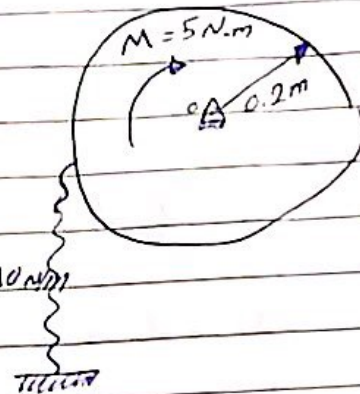 M = 5 N.m
0.2 m
o
10 N/m